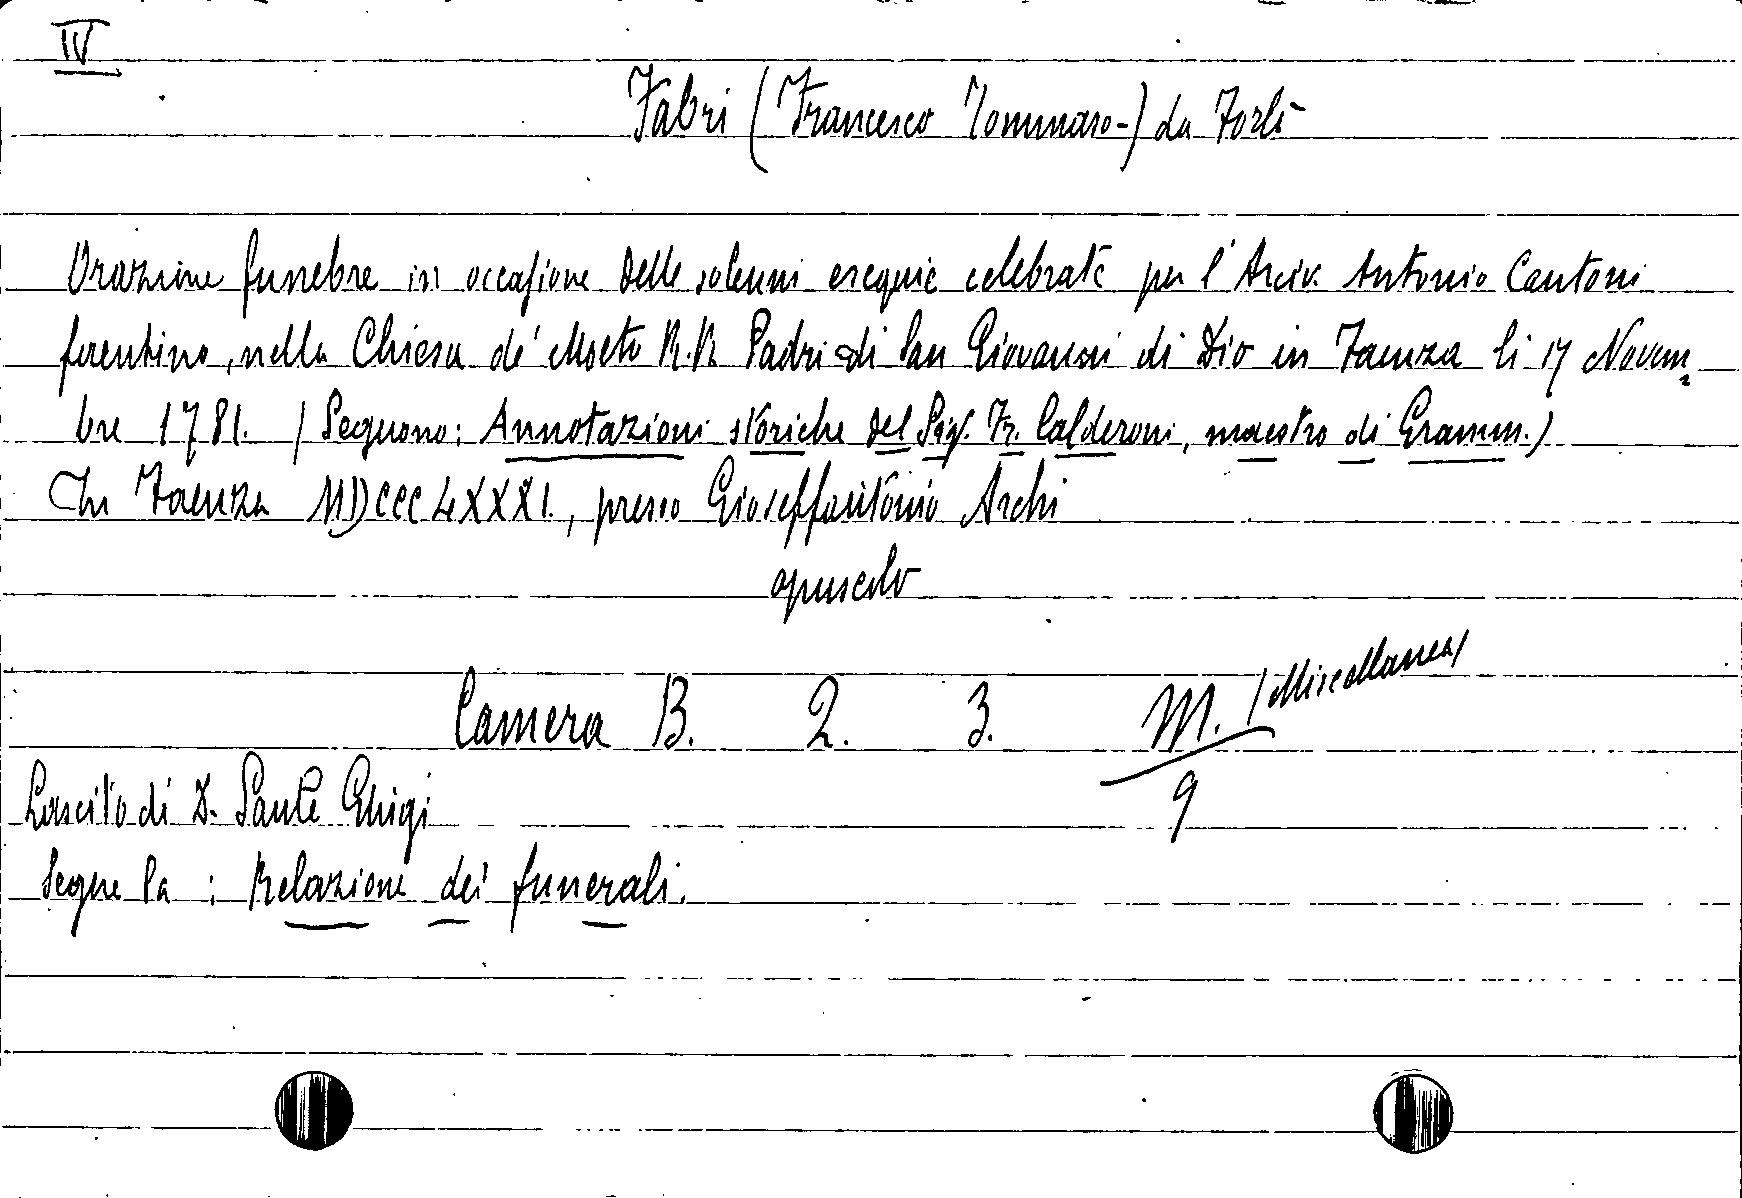 IV
Fabri (Francesco Tommaso-) da Forlì
Orazione funebre in occasione delle solenni esequie celebrate per l'Arciv. Antonio Cantoni
faentino, nella Chiesa de' Molto R.R. Padri di San Giovanni di Dio in Faenza li 17 Novem
bre 1781. (Seguono: Annotazioni storiche del Sig. Fr. Calderoni, maestro di Gramm.)
In Faenza MDCCCLXXXI., presso Gioseffantonio Archi
opuscolo
Camera B. 2. 3. M. (Miscellanea)
9
Lascito di D. Sante Ghigi
Segue la: Relazione dei funerali.